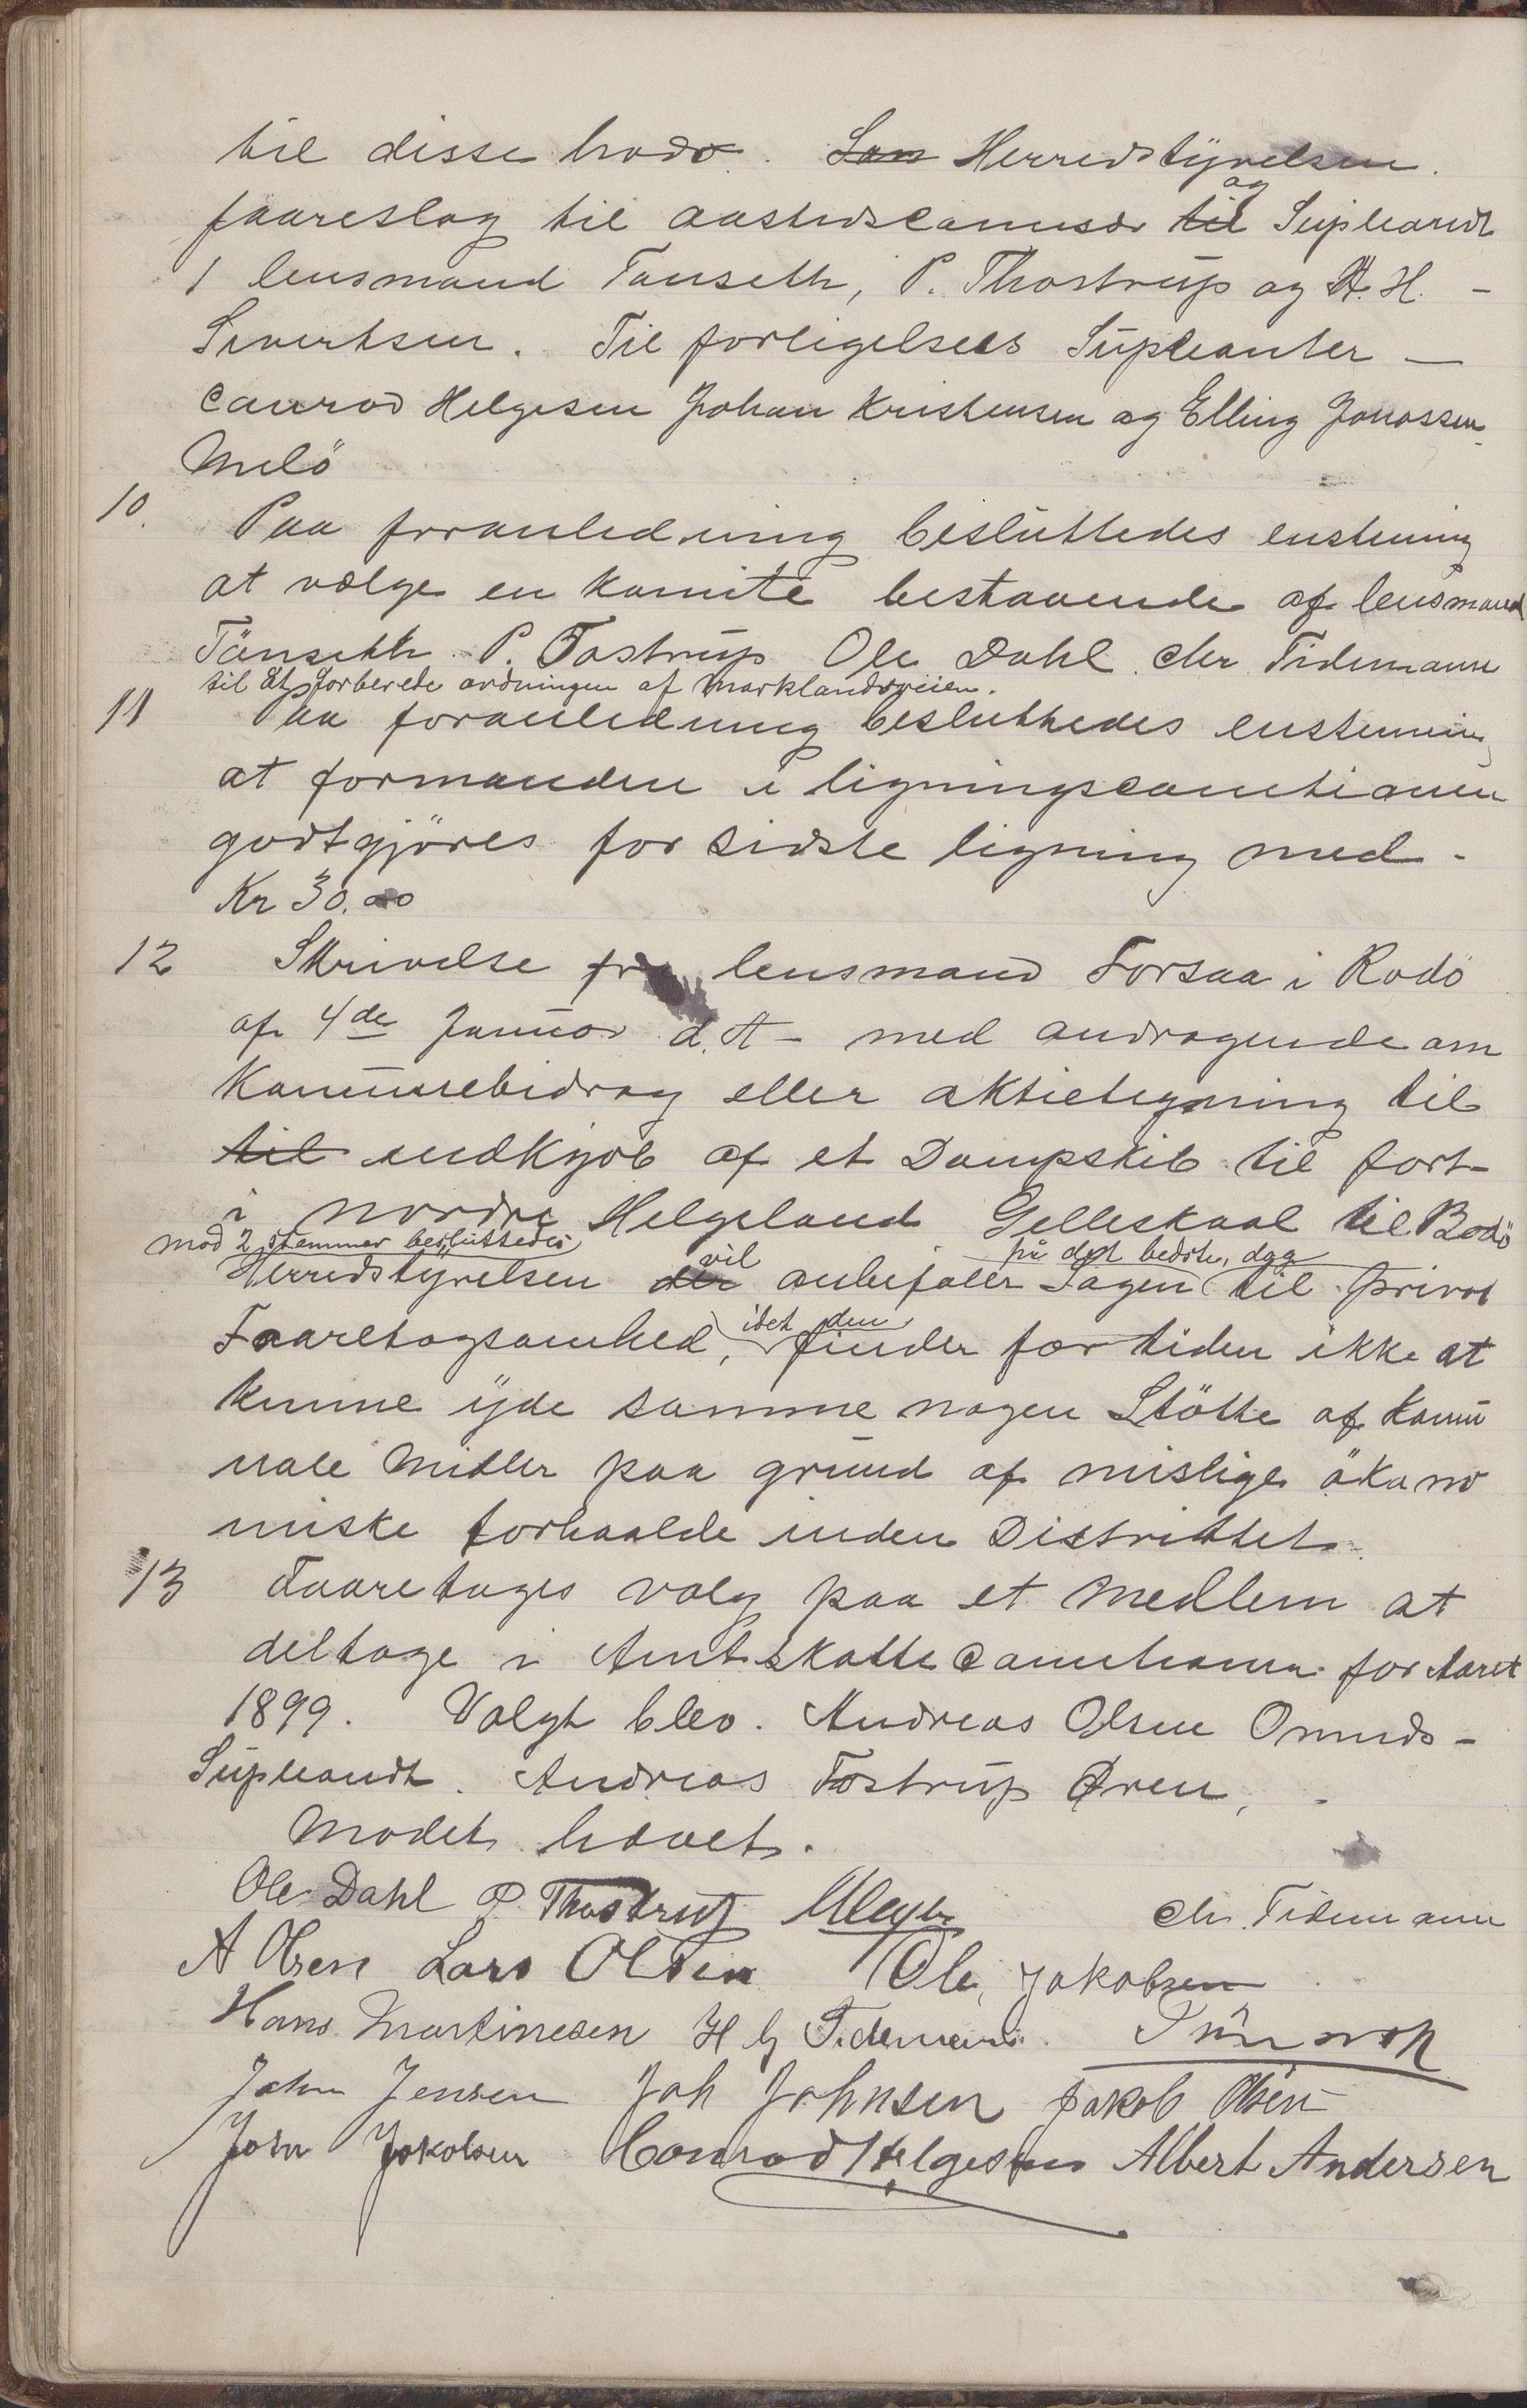 til disse hrado. Som Herredstyrelsen.
faareslag til aastedscommisær til og Supleandt
1 lensmand Tønseth, P. Thostrup og A. H. -
Sivertsen. Til forligelses Supleanter —
Conrad Helgesen Johan Kristensen og Elling Jonassen
Melö
10. Paa foranledning besluttedes enstemig
at vælge en komite bestaaende af lensmand
Tönseth P. Tostrup Ole Dahl Chr Tidemann
til at forberede ordningen af marklandsveien.
11 Paa foranledning besluttedes enstemmig
at formanden i ligningscomitionen
godtgjöres for sidste ligning med -
Kr 30.00
12 Skrivelse fra lensmand Forsaa i Rodö
af 4de Januar d. A - med andragende om
Kommunebidrag eller aktietegning til
til indkjöb af et Dampskib til fort-
i nordre Helgeland Gelleskaal til Bodö
mod 2 stemmer besluttedes
Herredstyrelsen der vil anbefaler Sagen på det bedste, dog til privat
Faaretagsomhed, idet den finder for tiden ikke at
kunne yde samme nogen Stötte af Komu
nale Midler paa grund af mislige ökano
miske forhaalde inden Distriktet.
13 Faaretages valg paa et medlem at
deltage i Amtskattecomitionen for Aaret
1899. Valgt blev. Andreas Olsen Onnuds -
Supleandt. Andreas Tostrup Øren, -
Modet hævet.
Ole Dahl P. Thostrup Meyer Chr. Tidemann
A Olsen Lars Olsen Ole Jakobsen
Hans Martinesen H G Tidemann. Tönseth
John Jensen Joh Johnsen Jakob Olsen
John Jakobsen Conrad Helgesen Albert Andersen